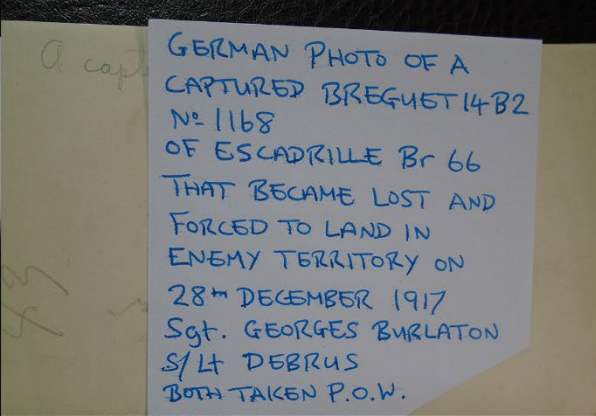 A capt
GERMAN PHOTO OF A
CAPTURED BREGUET 14 B2
No 1168
OF ESCADRILLE Br 66
THAT BECAME LOST AND
FORCED TO LAND IN
ENEMY TERRITORY ON
28TH DECEMBER 1917
Sgt. GEORGES BURLATON
S/Lt DEBRUS
BOTH TAKEN P.O.W.